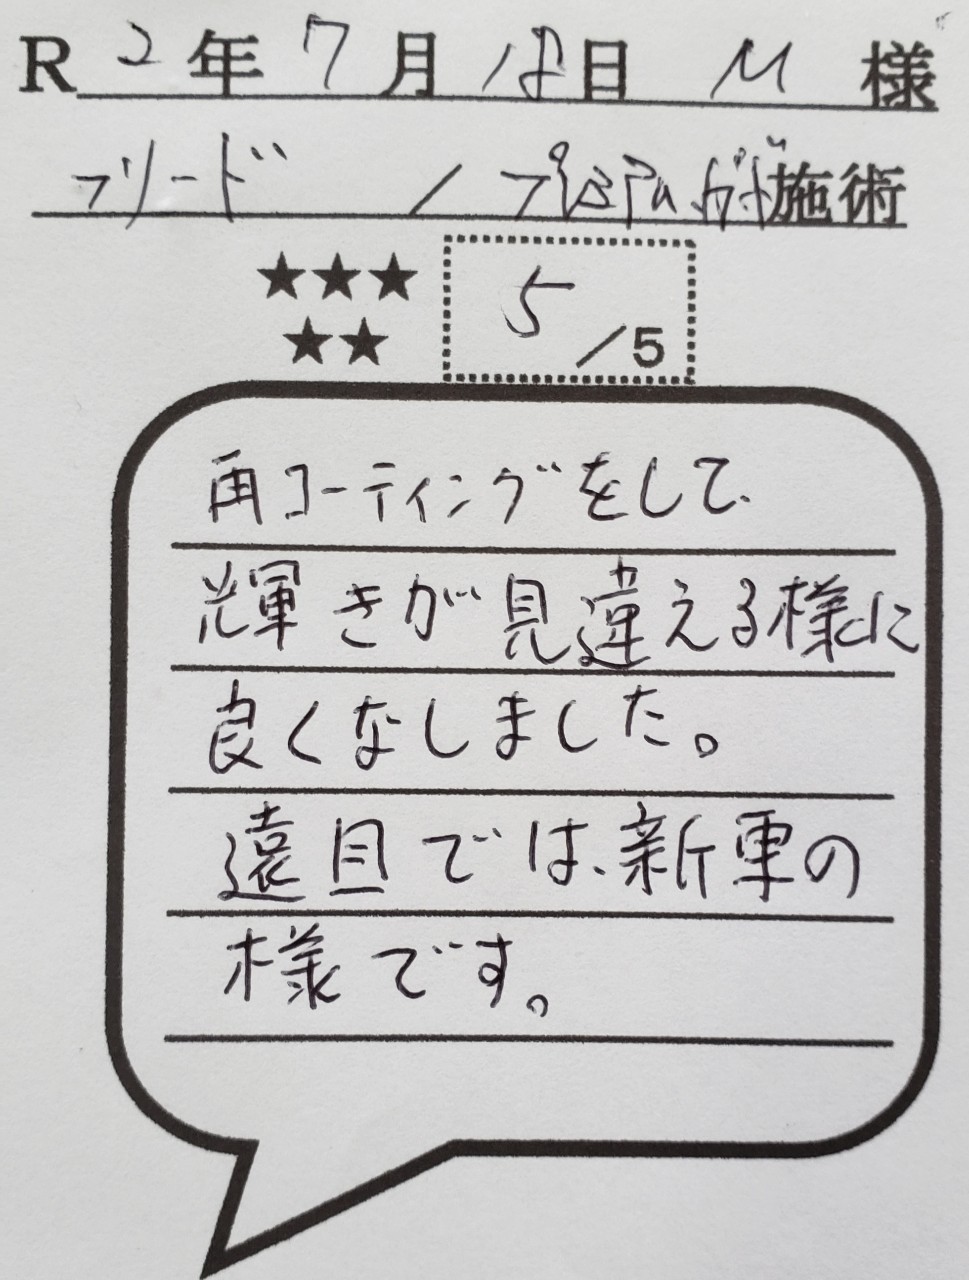 R2年7月18日 M様
フリード / プレミアムガード施術
★★★
★★
5/5
再コーティングをして、
輝きが見違える様に
良くなしました。
遠目では、新車の
様です。